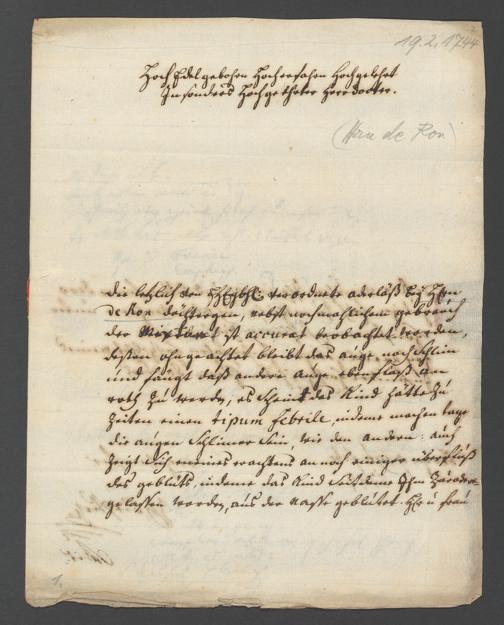 19.2.1744
Hoch Edelgebohrn Hocherfahrn Hochgelehrt
In sonders Hochgeehrter Herr Doctor.
(Herr de Ron)
Die letzlich von verordnete aderläß bey Hrn
de Ron döchtergen, nebst nochmahlichem gebrauch
der Mixtur ist accurat beobachtet worden,
deßen ohngeachtet bleibt das auge noch schlim
und fangt daß andere auge ebenfalß an
roth zu werden, es scheint das Kind hätte zu
Zeiten einen tipum febrile, indeme manchen tage
die augen schlimer sein, wie den andern: auch
zeigt sich meines erachtens annoch einiger überfluß
des geblüts, indeme das Kind seitdeme Ihm
gelassen worden, aus der Nasse geblutet. frau
1.